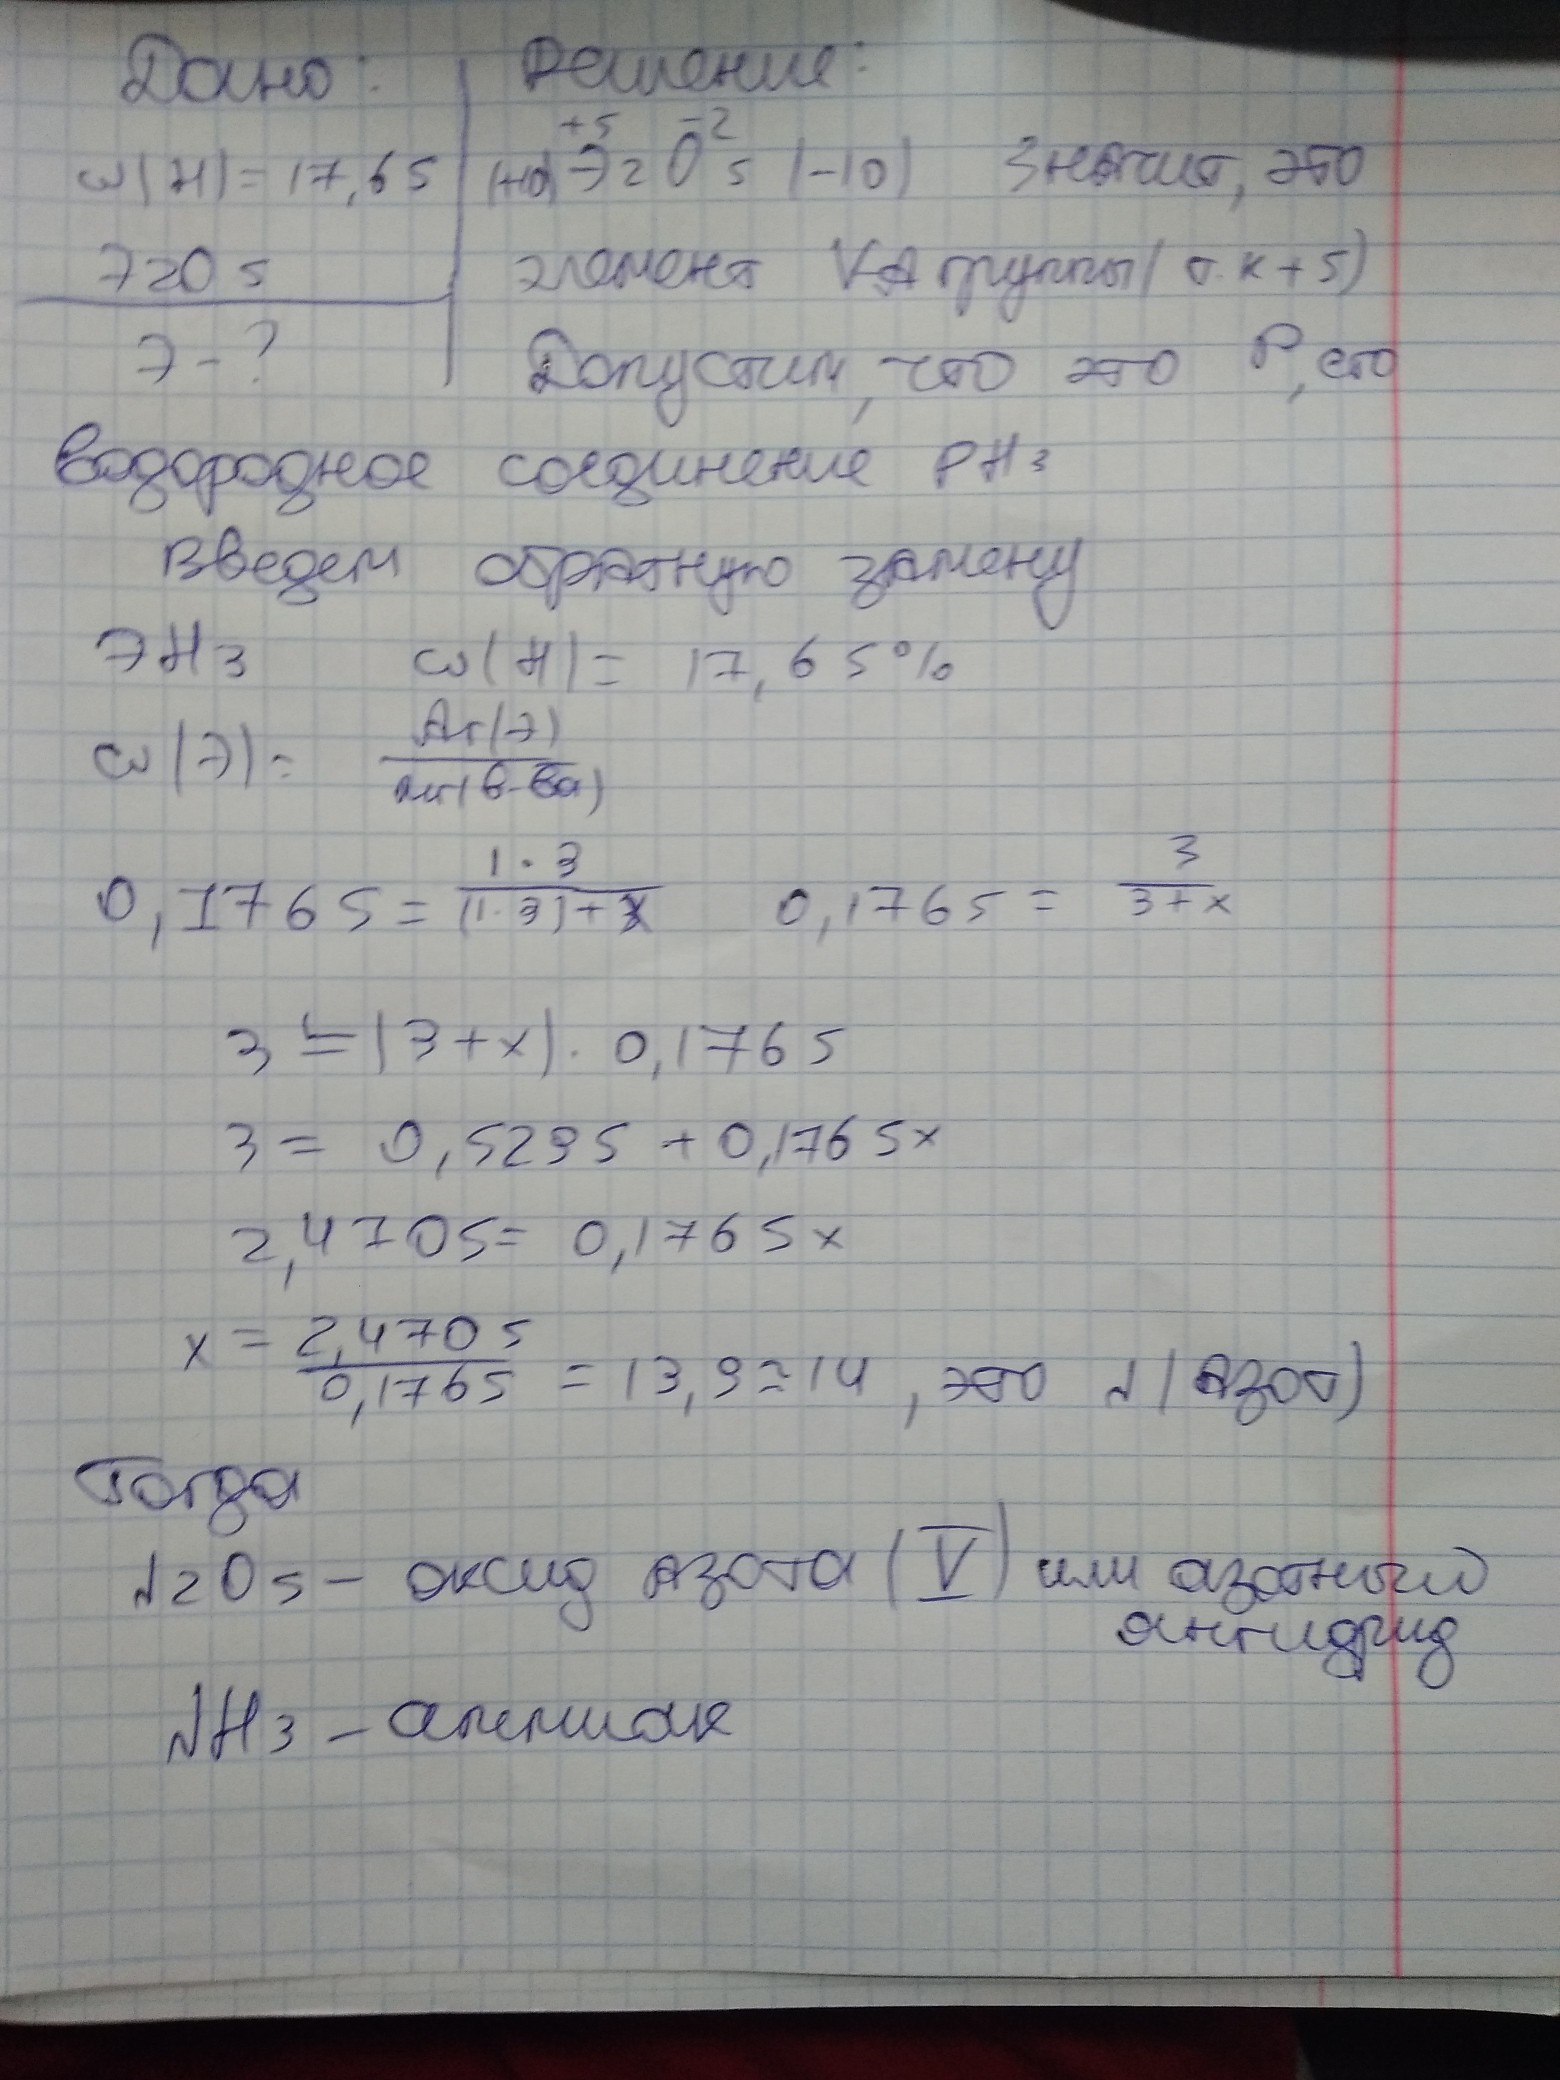 Дано: Решение:
ω(H) = 17,65 (+10) Э₂⁺⁵ O₅⁻² (-10) Значит, это
Э2O5 элемент VA группы (т.к +5)
Э - ? Допустим, что это P, его
водородное соединение PH3
Введем обратную замену
ЭH3 ω(H) = 17,65%
ω(Э) = Ar(Э) / Mr(в-ва)
0,1765 = 1·3 / (1·3)+x 0,1765 = 3 / 3+x
3 = (3+x)·0,1765
3 = 0,5295 + 0,1765x
2,4705 = 0,1765x
x = 2,4705 / 0,1765 = 13,9 ≈ 14, это N (Азот)
Тогда
N2O5 - оксид азота (V) или азотный
ангидрид
NH3 - аммиак